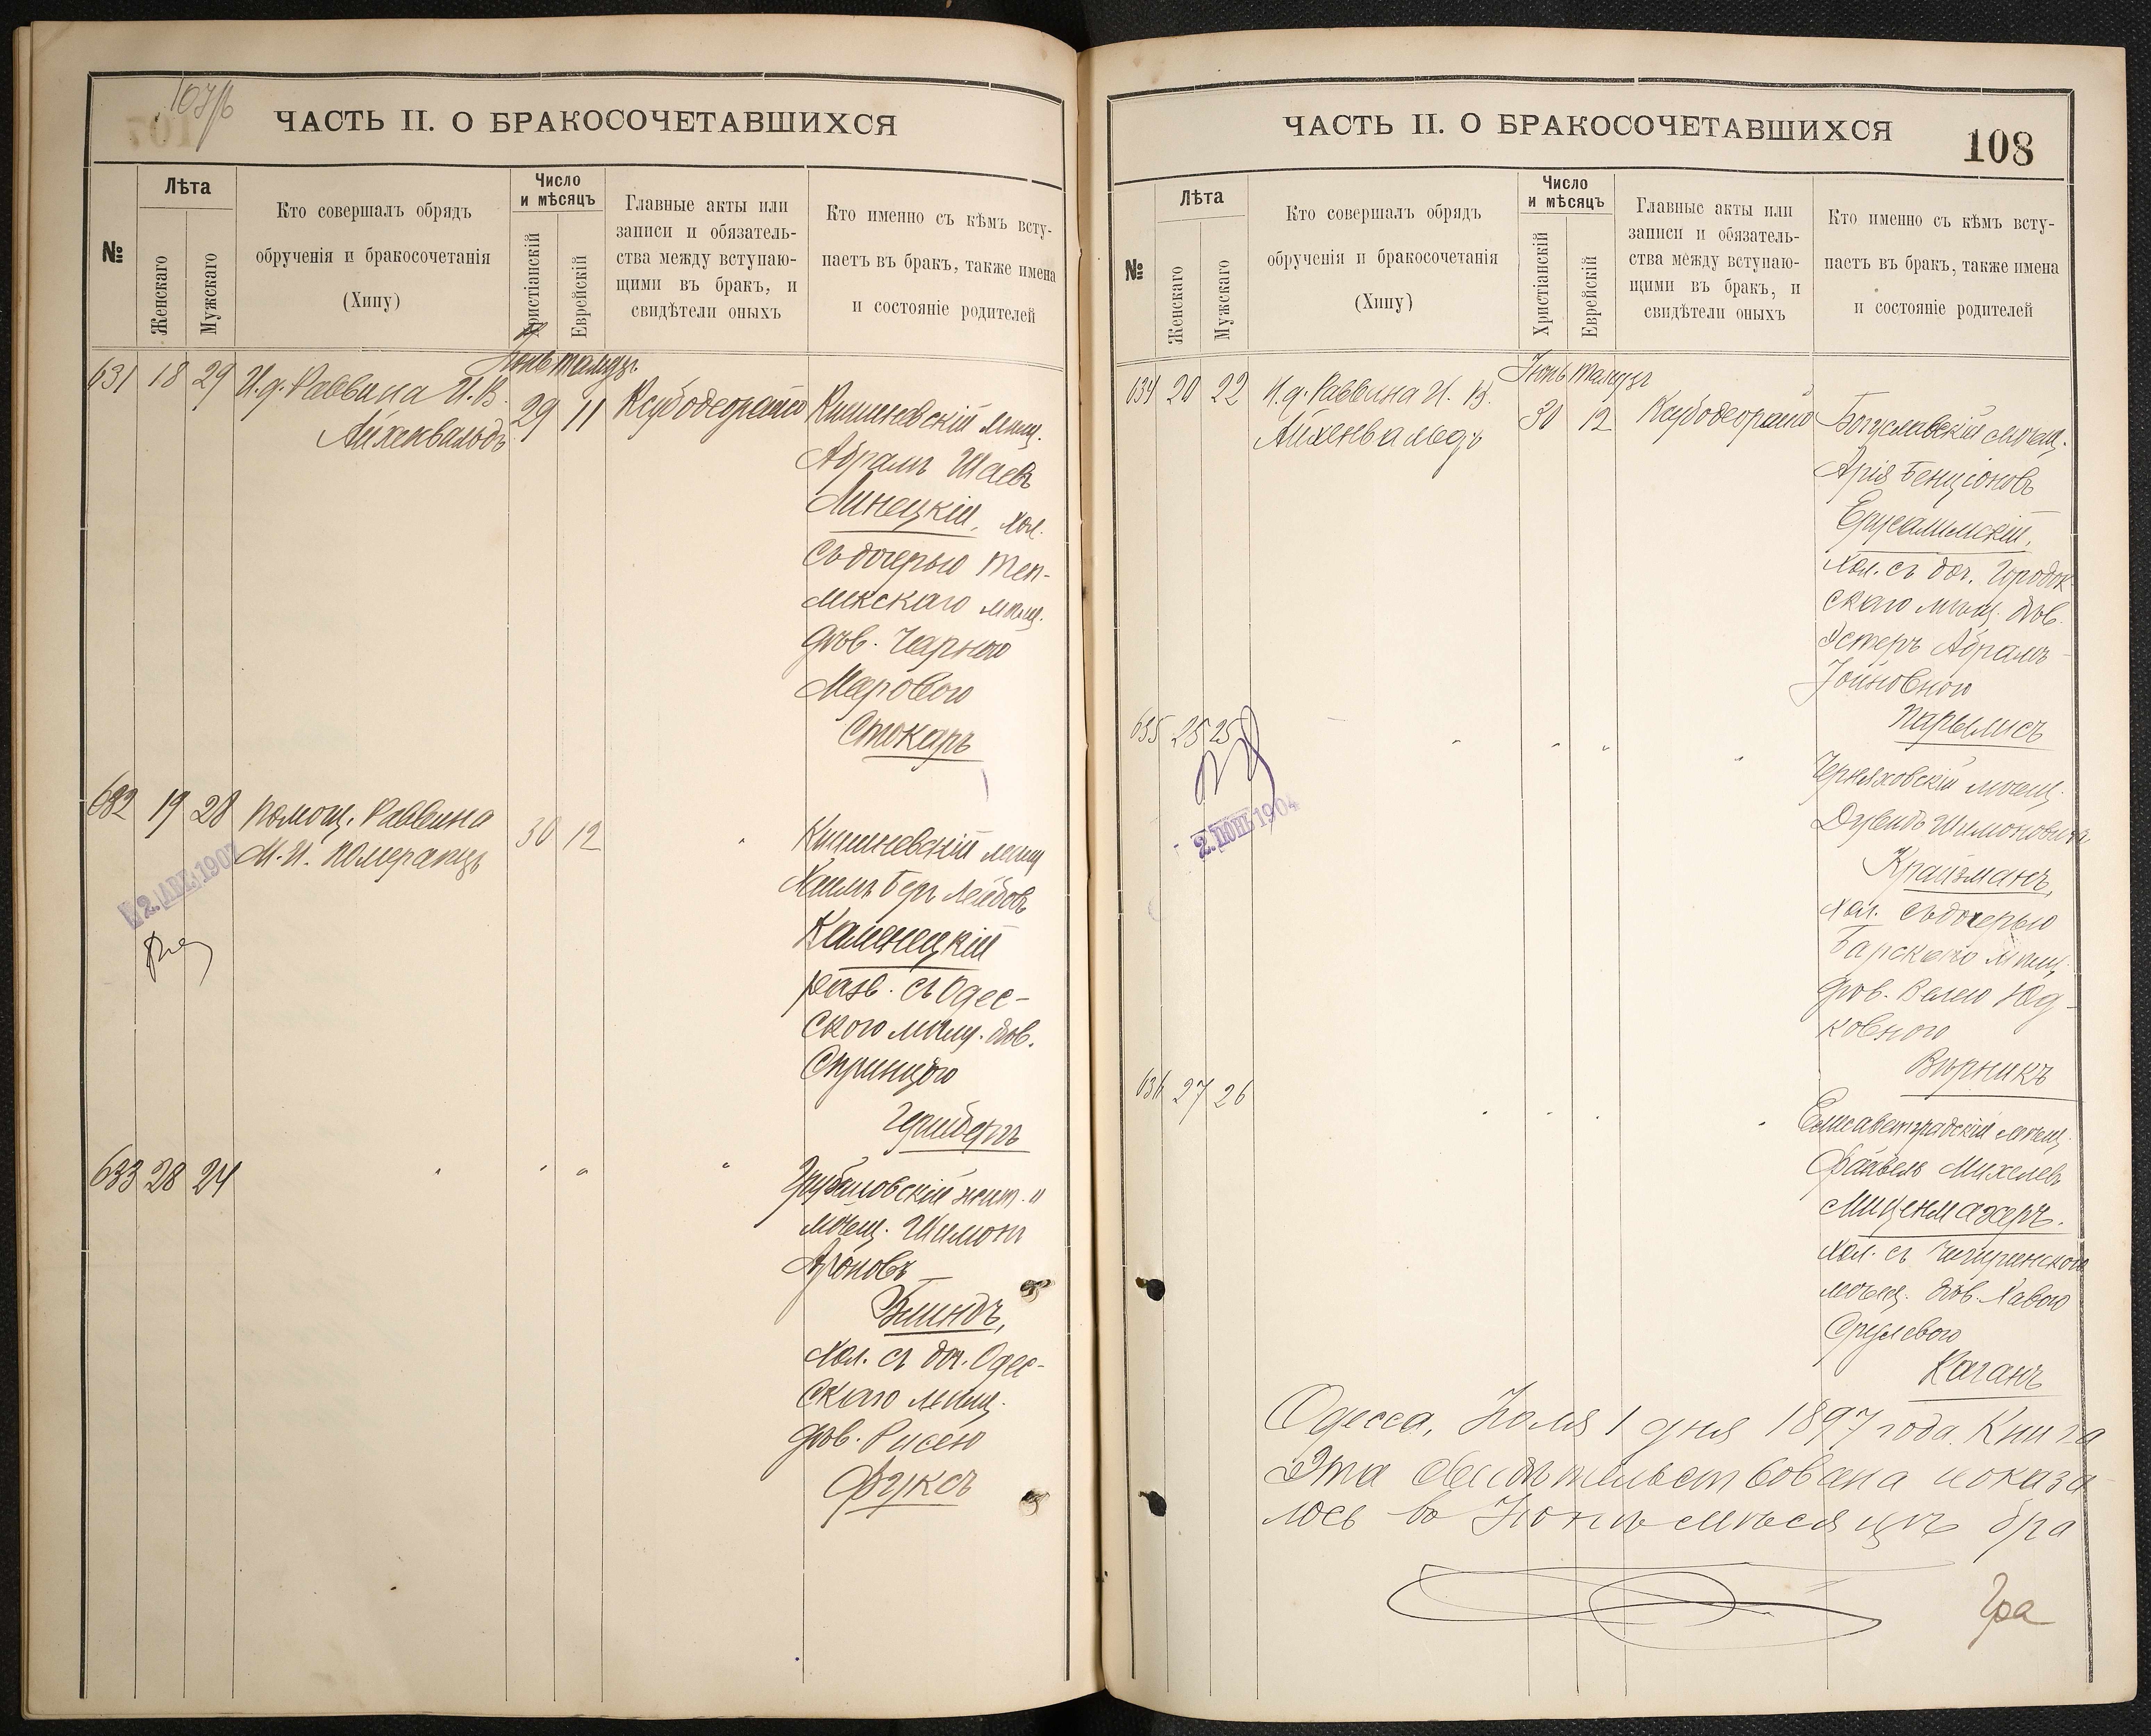 107/б
ЧАСТЬ II. О БРАКОСОЧЕТАВШИХСЯ
№
Лѣта
Женскаго
Мужскаго
Кто совершалъ обрядъ
обрученія и бракосочетанія
(Хипу)
Число
и мѣсяцъ
Христіанскій
Еврейскій
Главные акты или
записи и обязатель-
ства между вступаю-
щими въ бракъ, и
свидѣтели оныхъ
Кто именно съ кѣмъ всту-
паетъ въ бракъ, также имена
и состояніе родителей
Іюнь Тамузъ
631 18 29 И.д. Раввина И.В.
Айхенвальдъ
29 11
Кишиневскій мѣщ.
Абрамъ Шаевъ
Линецкій, хол.
съ дочерью Теп-
ликскаго мѣщ.
дѣв. Чарною
Меровою
Стокаръ
632 19 28 Помощ. Раввина
М.И. Померанцъ
30 12
Кишиневскій мѣщ
Хаимъ Беръ Лейбовъ
Каменецкій
разв. съ Одес-
скою мѣщ. дѣв.
Спринцою
2. АВГ. 1907
633 28 24 " " " "
мѣщ. Шимонъ
Ароновъ
Блиндъ,
хол. съ доч. Одес-
скаго мѣщ.
дѣв. Рисею
Фуксъ
ЧАСТЬ II. О БРАКОСОЧЕТАВШИХСЯ
108
№
Лѣта
Женскаго
Мужскаго
Кто совершалъ обрядъ
обрученія и бракосочетанія
(Хипу)
Число
и мѣсяцъ
Христіанскій
Еврейскій
Главные акты или
записи и обязатель-
ства между вступаю-
щими въ бракъ, и
свидѣтели оныхъ
Кто именно съ кѣмъ всту-
паетъ въ бракъ, также имена
и состояніе родителей
Іюнь Тамузъ
634 20 22 И.д. Раввина И.В.
Айхенвальдъ
30 12
Богуславскій мѣщ.
Арія Бенціоновъ
Ерусалимскій,
хол. съ доч. Городок
скаго мѣщ. дѣв.
Эстеръ Абрамъ-
Іойновною
635 25 25 " " " "
2. ІЮН. 1904
Черняховскій мѣщ.
Дувидъ Шимоновичъ
Крайзманъ,
хол. съ дочерью
Барскаго мѣщ.
дѣв. Велею Юд-
ковною
Вѣрникъ
636 27 26 " " " "
Елисаветградскій мѣщ.
Файвель Михелевъ
Миценмахеръ.
хол. съ Чигиринскою
мѣщ. дѣв. Хавою
Срулевою
Каганъ
Одесса, Іюля 1 дня 1897 года. Книга
Эта свидѣтельствована и оказа
лось въ Іюнѣ мѣсяцѣ бра